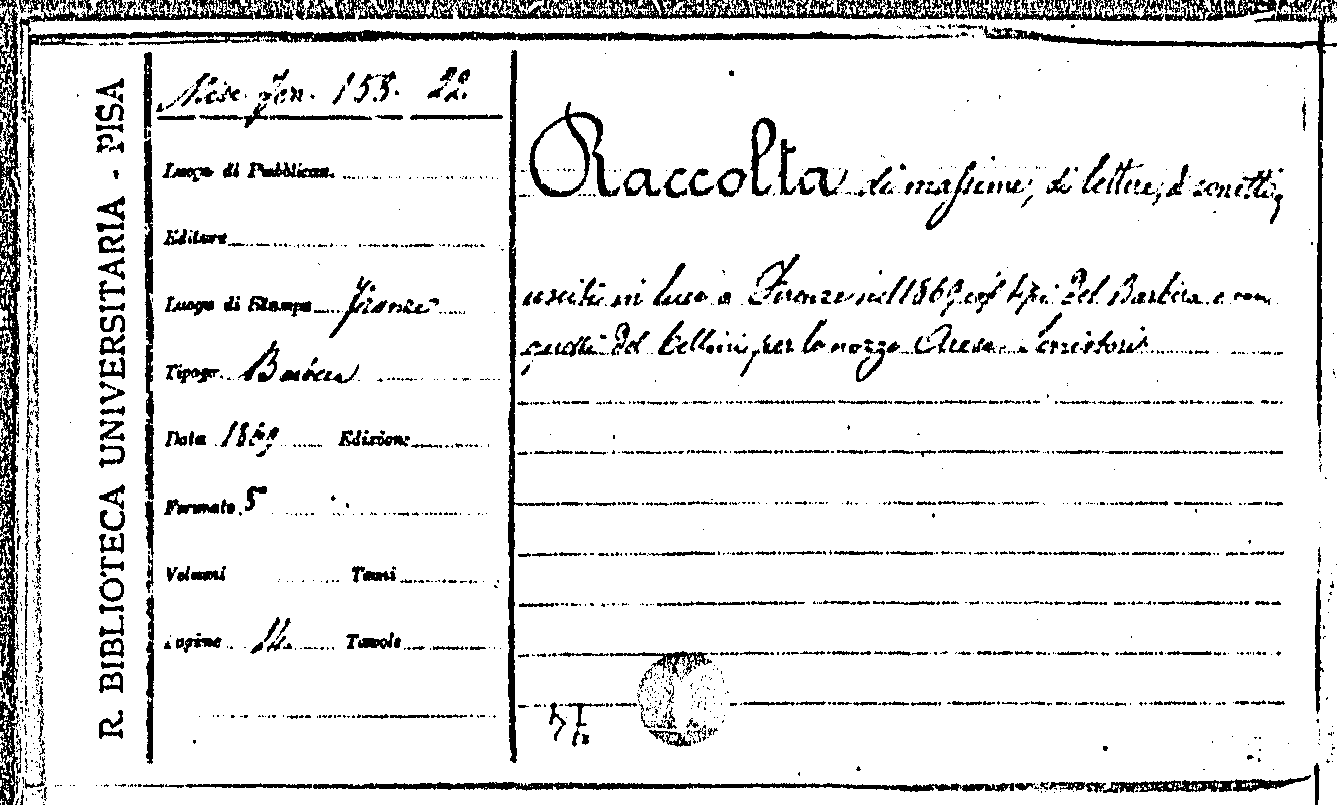 R. BIBLIOTECA UNIVERSITARIA - PISA
Misc. Gen. 155. 22.
Luogo di Pubblicaz.
Editore
Luogo di Stampa Firenze
Tipogr. Barbèra
Data 1869 Edizione
Formato 8°
Volumi Tomi
Pagine 14. Tavole
Raccolta di massime, di lettere, di sonetti,
usciti in luce a Firenze nel 1869 coi tipi del Barbèra e con
quelli del Cellini per le nozze Arese